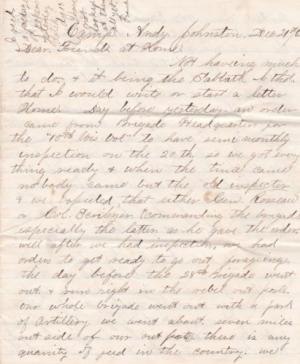 Camp Andy Johnston, Dec 21st
Dear Friends at Home
Not having much
to do, & it being the Sabbath I thot
that I would write or start a letter
Home. Day before yesterday an order
came from Brigade Headquarters for
the "10th Wis Vol" to have semi monthly
inspection on the 20th so we got every
thing ready & when the time came
nobody came but the old inspector
& we expected that either Gen
or Col. commanding the brigade
especially the latter as he gave the order
well after we had inspection, we had
orders to get ready to go out foraging
the day before the 28th Brigade went
out & run right in the rebel out posts
our whole brigade went out with a park
of Artillery we went about seven miles
out side of our out posts there is any
quantity of feed in the country. we